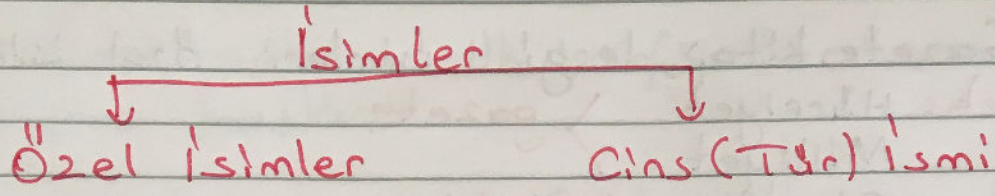 İsimler
Özel İsimler Cins (Tür) İsmi